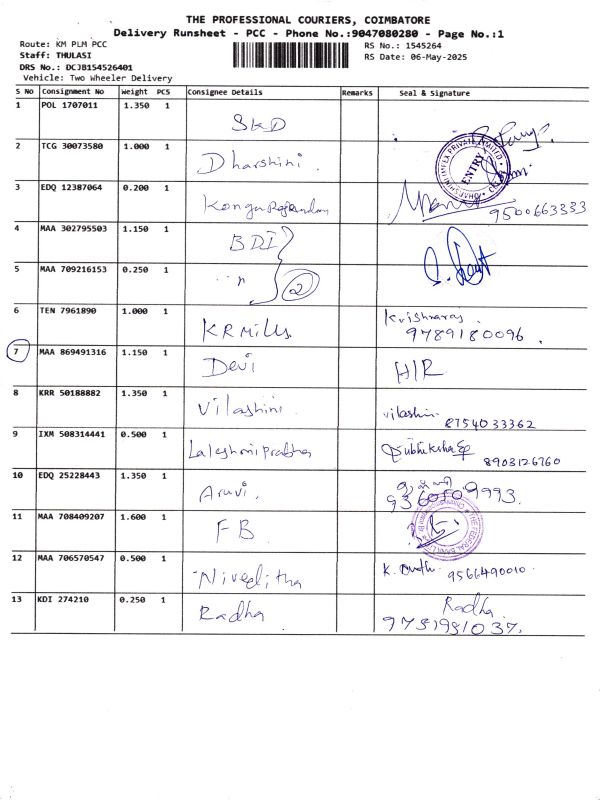 THE PROFESSIONAL COURIERS, COIMBATORE
Delivery Runsheet - PCC - Phone No.:9047080280 - Page No.:1
Route: KM PLM PCC
RS No.: 1545264
Staff: THULASI
RS Date: 06-May-2025
DRS No.: DCJB154526401
Vehicle: Two Wheeler Delivery
S No Consignment No Weight PCS Consignee Details Remarks Seal & Signature
1 POL 1707011 1.350 1
SKD
2 TCG 30073580 1.000 1
Dharshini. ENTRY
3 EDQ 12387064 0.200 1
9500663333
4 MAA 302795503 1.150 1
BDI
5 MAA 709216153 0.250 1
" 2
6 TEN 7961890 1.000 1
KR Mills 9789180096.
7 MAA 869491316 1.150 1
Devi H/R
8 KRR 50188882 1.350 1
Vilashini vilashini 8754033362
9 IXM 508314441 0.500 1
8903126760
10 EDQ 25228443 1.350 1
Aruvi.
11 MAA 708409207 1.600 1
FB THE FEDERAL BANK LTD
12 MAA 706570547 0.500 1
Niveditha 9566490010
13 KDI 274210 0.250 1
Radha Radha